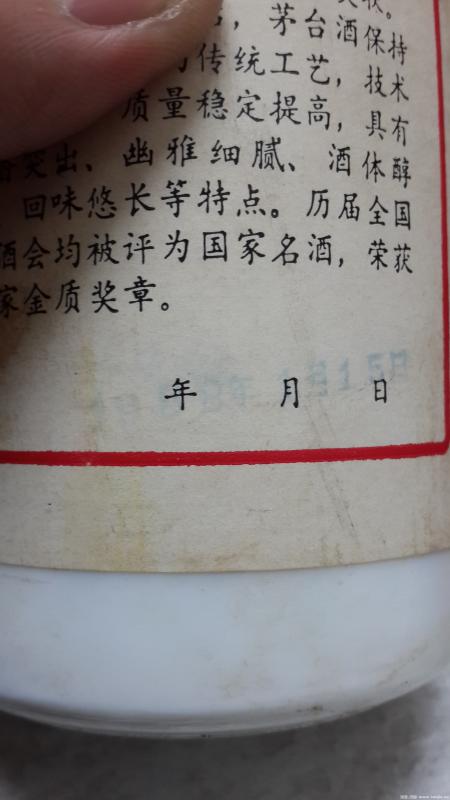 茅台酒保持
传统工艺，技术
质量稳定提高，具有
突出、幽雅细腻、酒体醇
回味悠长等特点。历届全国
酒会均被评为国家名酒，荣获
家金质奖章。
年 月 日